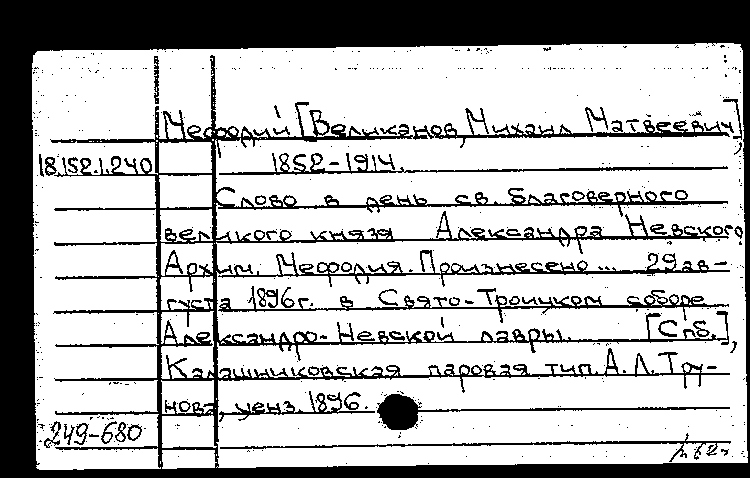 Мефодий [Великанов, Михаил Матвеевич],
18.152.1.240 1852-1914.
Слово в день св. благоверного
великого князя Александра Невского
Архим. Мефодия. Произнесено... 29 ав-
густа 1896 г. в Свято-Троицком соборе
Александро-Невской лавры. [Спб.],
Калашниковская паровая тип. А. Л. Тру-
нова, ценз. 1896.
249-680